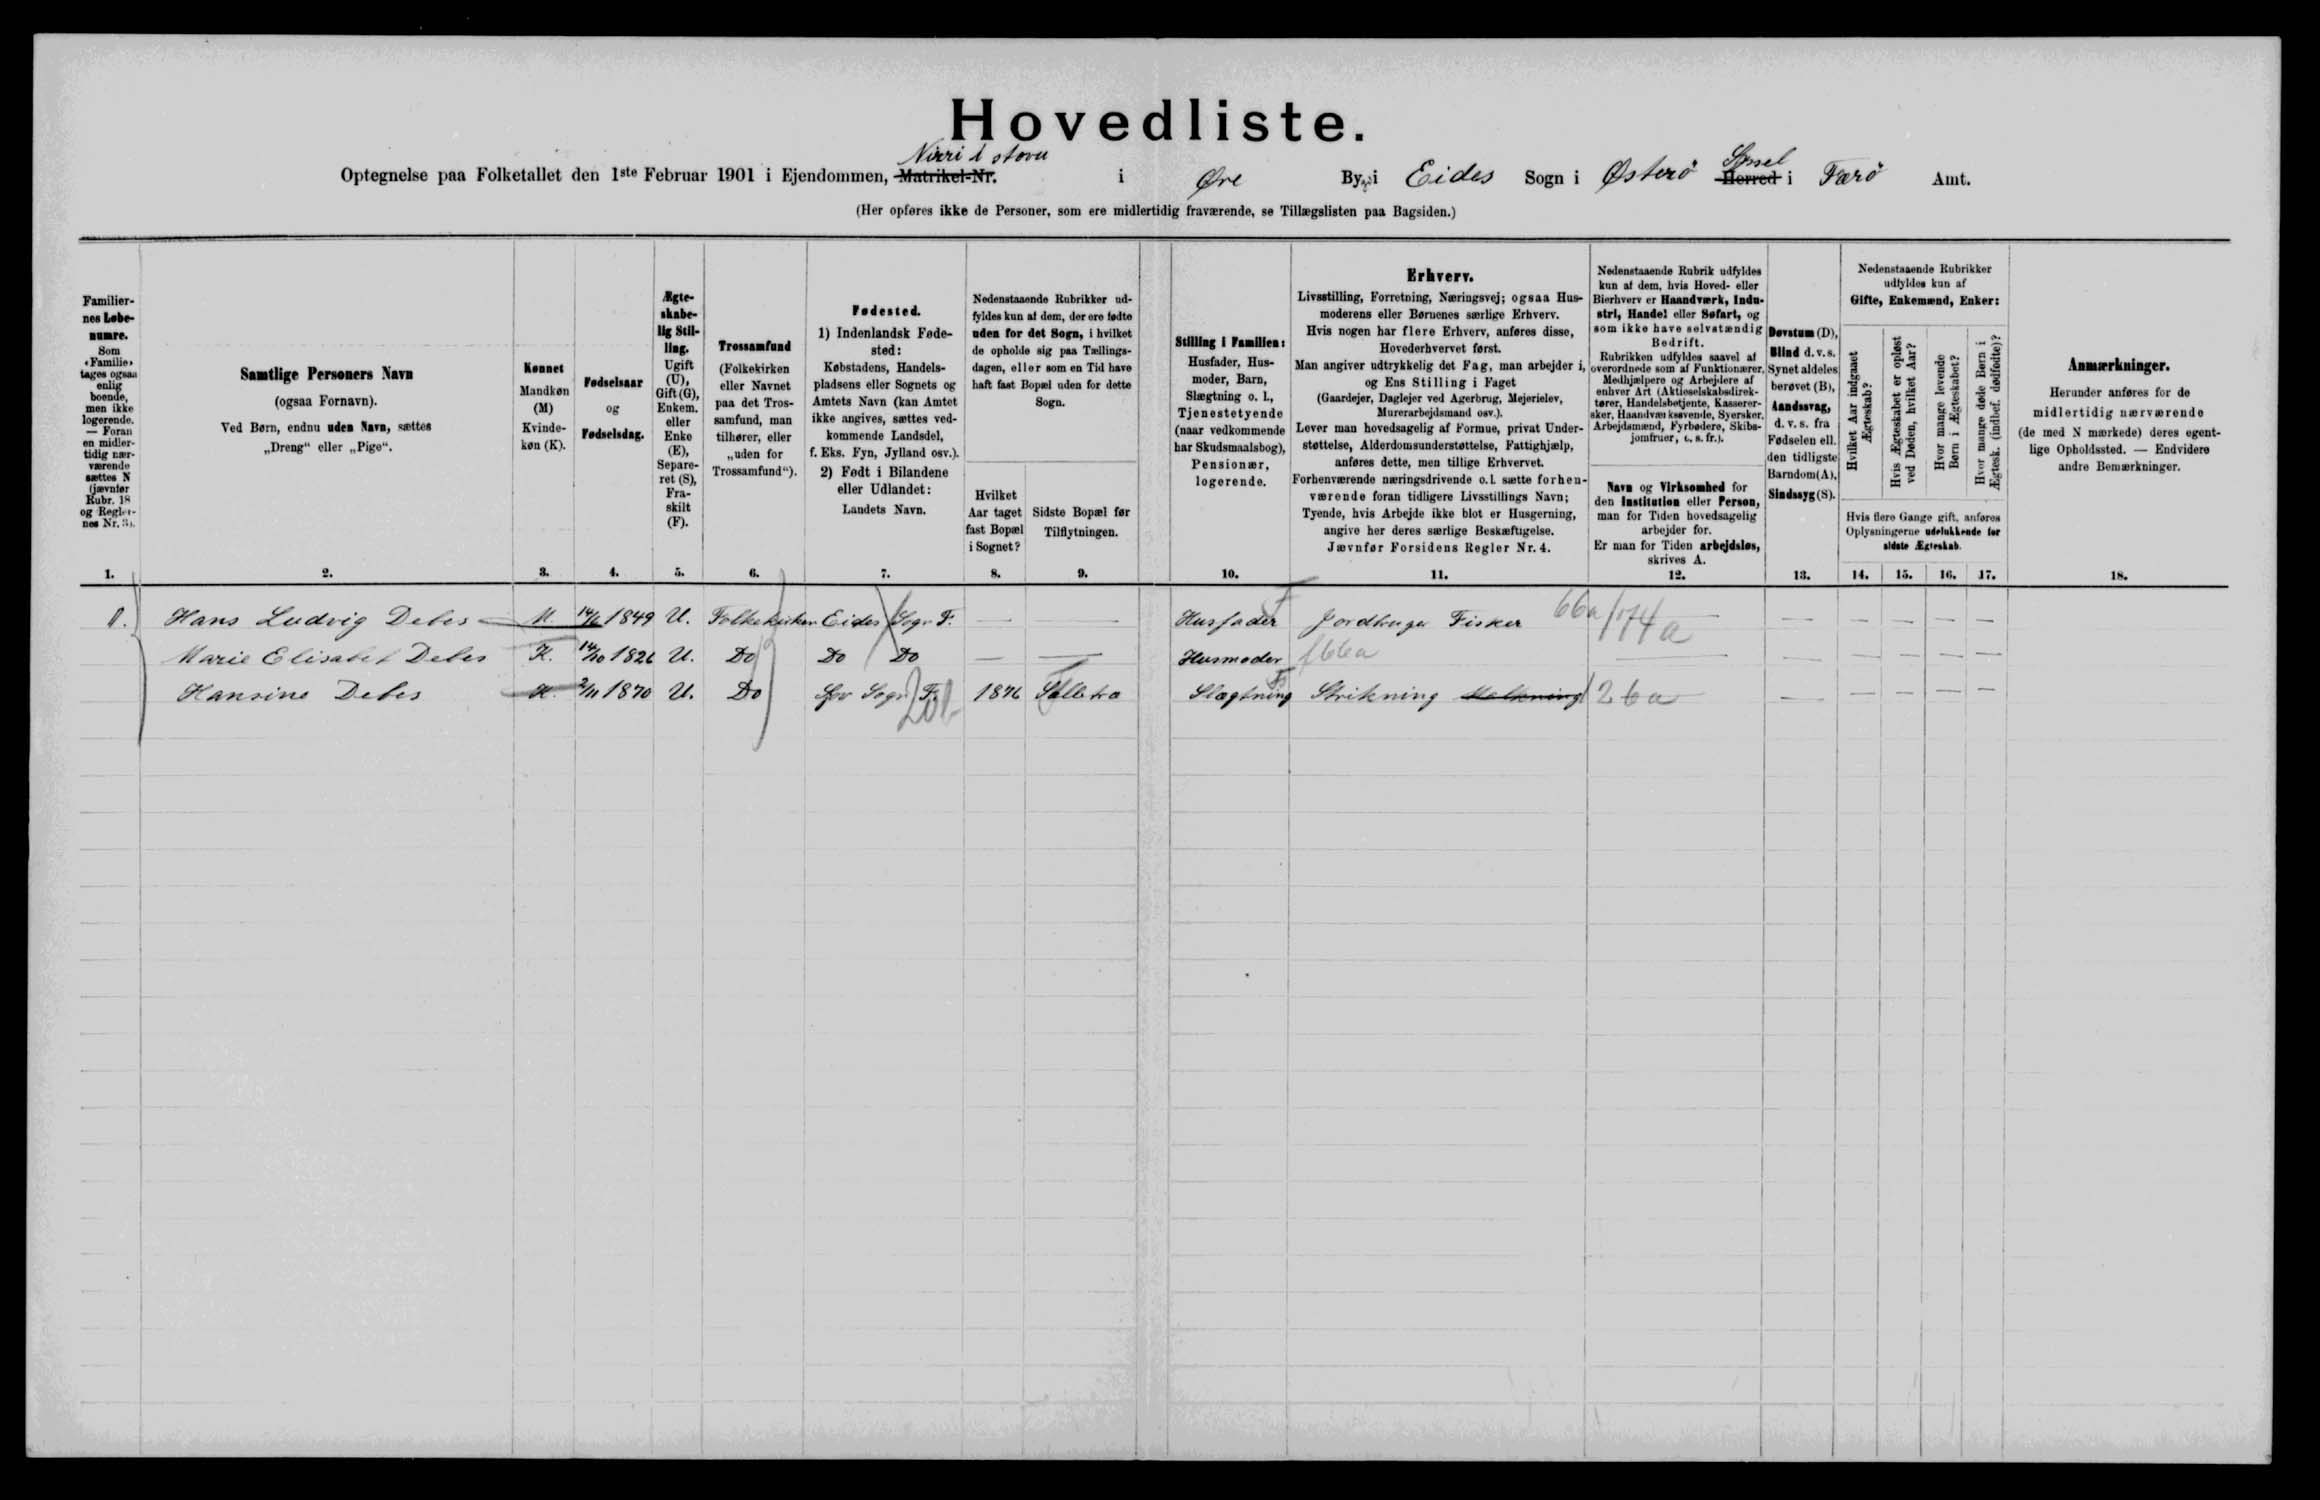 Hovedliste.
Nirri i stovu
Syssel
Optegnelse paa Folketallet den 1ste Februar 1901 i Ejendommen, Matrikel-Nr. i Øre By i Eides Sogn i Østerö Herred i Færö Amt.
(Her opføres ikke de Personer, som ere midlertidig fraværende, se Tillægslisten paa Bagsiden.)
Familier-
nes Løbe-
numre.
Som
«Familie»
tages ogsaa
enlig
boende,
men ikke
logerende.
— Foran
en midler-
tidig nær-
værende
sættes N
(jævnfør
Rubr. 18
og Regler-
nes Nr. 3).
1.
Samtlige Personers Navn
(ogsaa Fornavn).
Ved Børn, endnu uden Navn, sættes
„Dreng“ eller „Pige“.
2.
Kønnet
Mandkøn
(M)
Kvinde-
køn (K).
3.
Fødselsaar
og
Fødselsdag.
4.
Ægte-
skabe-
lig Stil-
ling.
Ugift
(U),
Gift (G),
Enkem.
eller
Enke
(E),
Separe-
ret (S),
Fra-
skilt
(F).
5.
Trossamfund
(Folkekirken
eller Navnet
paa det Tros-
samfund, man
tilhører, eller
„uden for
Trossamfund“).
6.
Fødested.
1) Indenlandsk Føde-
sted:
Købstadens, Handels-
pladsens eller Sognets og
Amtets Navn (kan Amtet
ikke angives, sættes ved-
kommende Landsdel,
f. Eks. Fyn, Jylland osv.).
2) Født i Bilandene
eller Udlandet:
Landets Navn.
7.
Nedenstaaende Rubrikker ud-
fyldes kun af dem, der ere fødte
uden for det Sogn, i hvilket
de opholde sig paa Tællings-
dagen, eller som en Tid have
haft fast Bopæl uden for dette
Sogn.
Hvilket
Aar taget
fast Bopæl
i Sognet?
8.
Sidste Bopæl før
Tilflytningen.
9.
Stilling i Familien:
Husfader, Hus-
moder, Barn,
Slægtning o. l.,
Tjenestetyende
(naar vedkommende
har Skudsmaalsbog),
Pensionær,
logerende.
10.
Erhverv.
Livsstilling, Forretning, Næringsvej; ogsaa Hus-
moderens eller Børnenes særlige Erhverv.
Hvis nogen har flere Erhverv, anføres disse,
Hovederhvervet først.
Man angiver udtrykkelig det Fag, man arbejder i,
og Ens Stilling i Faget
(Gaardejer, Daglejer ved Agerbrug, Mejerielev,
Murerarbejdsmand osv.).
Lever man hovedsagelig af Formue, privat Under-
støttelse, Alderdomsunderstøttelse, Fattighjælp,
anføres dette, men tillige Erhvervet.
Forhenværende næringsdrivende o. l. sætte forhen-
værende foran tidligere Livsstillings Navn;
Tyende, hvis Arbejde ikke blot er Husgerning,
angive her deres særlige Beskæftigelse.
Jævnfør Forsidens Regler Nr. 4.
11.
Nedenstaaende Rubrik udfyldes
kun af dem, hvis Hoved- eller
Bierhverv er Haandværk, Indu-
stri, Handel eller Søfart, og
som ikke have selvstændig
Bedrift.
Rubrikken udfyldes saavel af
overordnede som af Funktionærer,
Medhjælpere og Arbejdere af
enhver Art (Aktieselskabsdirek-
tører, Handelsbetjente, Kasserer-
sker, Haandværksøvende, Syersker,
Arbejdsmænd, Fyrbødere, Skibs-
jomfruer, o. s. fr.).
Navn og Virksomhed for
den Institution eller Person,
man for Tiden hovedsagelig
arbejder for.
Er man for Tiden arbejdsløs,
skrives A.
12.
Døvstum (D),
Blind d. v. s.
Synet aldeles
berøvet (B),
Aandssvag,
d. v. s. fra
Fødselen ell.
den tidligste
Barndom (A),
Sindssyg (S).
13.
Nedenstaaende Rubrikker
udfyldes kun af
Gifte, Enkemænd, Enker:
Hvilket Aar indgaaet
Ægteskab?
Hvis Ægteskabet er opløst
ved Døden, hvilket Aar?
Hvor mange levende
Børn i Ægteskabet?
Hvor mange døde Børn i
Ægtesk. (indbef. dødfødte)?
Hvis flere Gange gift, anføres
Oplysningerne udelukkende for
sidste Ægteskab.
14. 15. 16. 17.
Anmærkninger.
Herunder anføres for de
midlertidig nærværende
(de med N mærkede) deres egent-
lige Opholdssted. — Endvidere
andre Bemærkninger.
18.
1. Hans Ludvig Debes M. 14/6 1849 U. Folkekirken Eides Sogn F. — — Husfader F Jordbruger Fisker 66a/174a — — — — — —
Marie Elisabet Debes K. 14/10 1826 U. Do Do Do — — Husmoder f66a — — — — — —
Hansine Debes K. 2/11 1870 U. Do Sogn F. 20b 1876 Slægtning Strikning 26a — — — — — —